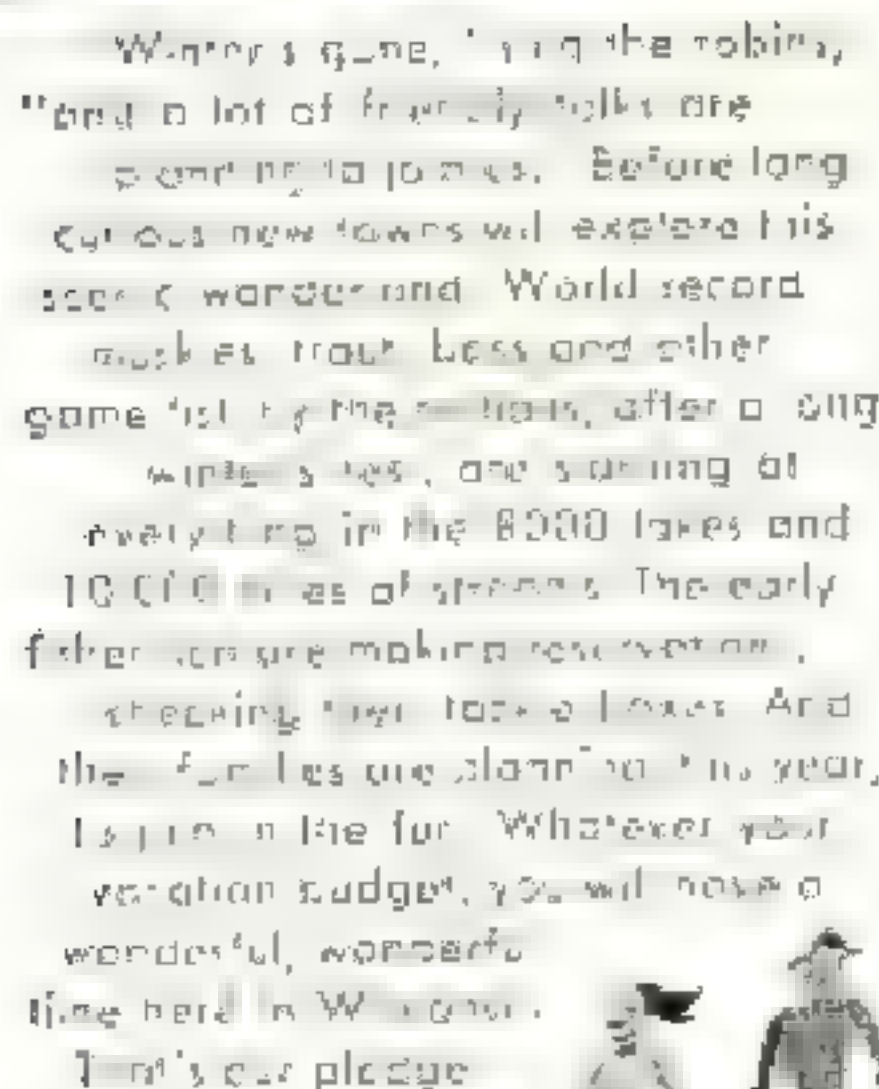 Winter is gone, the robins,
"and a lot of friendly folks are
planning to join us. Before long
curious new towns will explore this
scenic wonderland World record
muskies trout bass and other
game fish the after a long
winter's rest, are starting at
everything in the 8000 lakes and
10,000 miles of streams The early
fishermen are making reservations,
checking their tackle boxes And
the families are planning this year,
to join in the fun Whatever your
vacation budget, you will have a
wonderful, wonderful
time here in Wisconsin.
That's our pledge